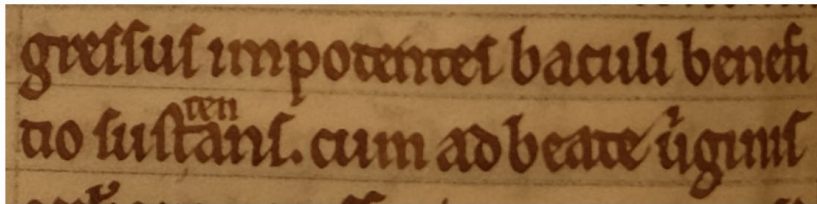 gressus impotentes baculi benefi
cio sustentans. cum ad beate uiginis